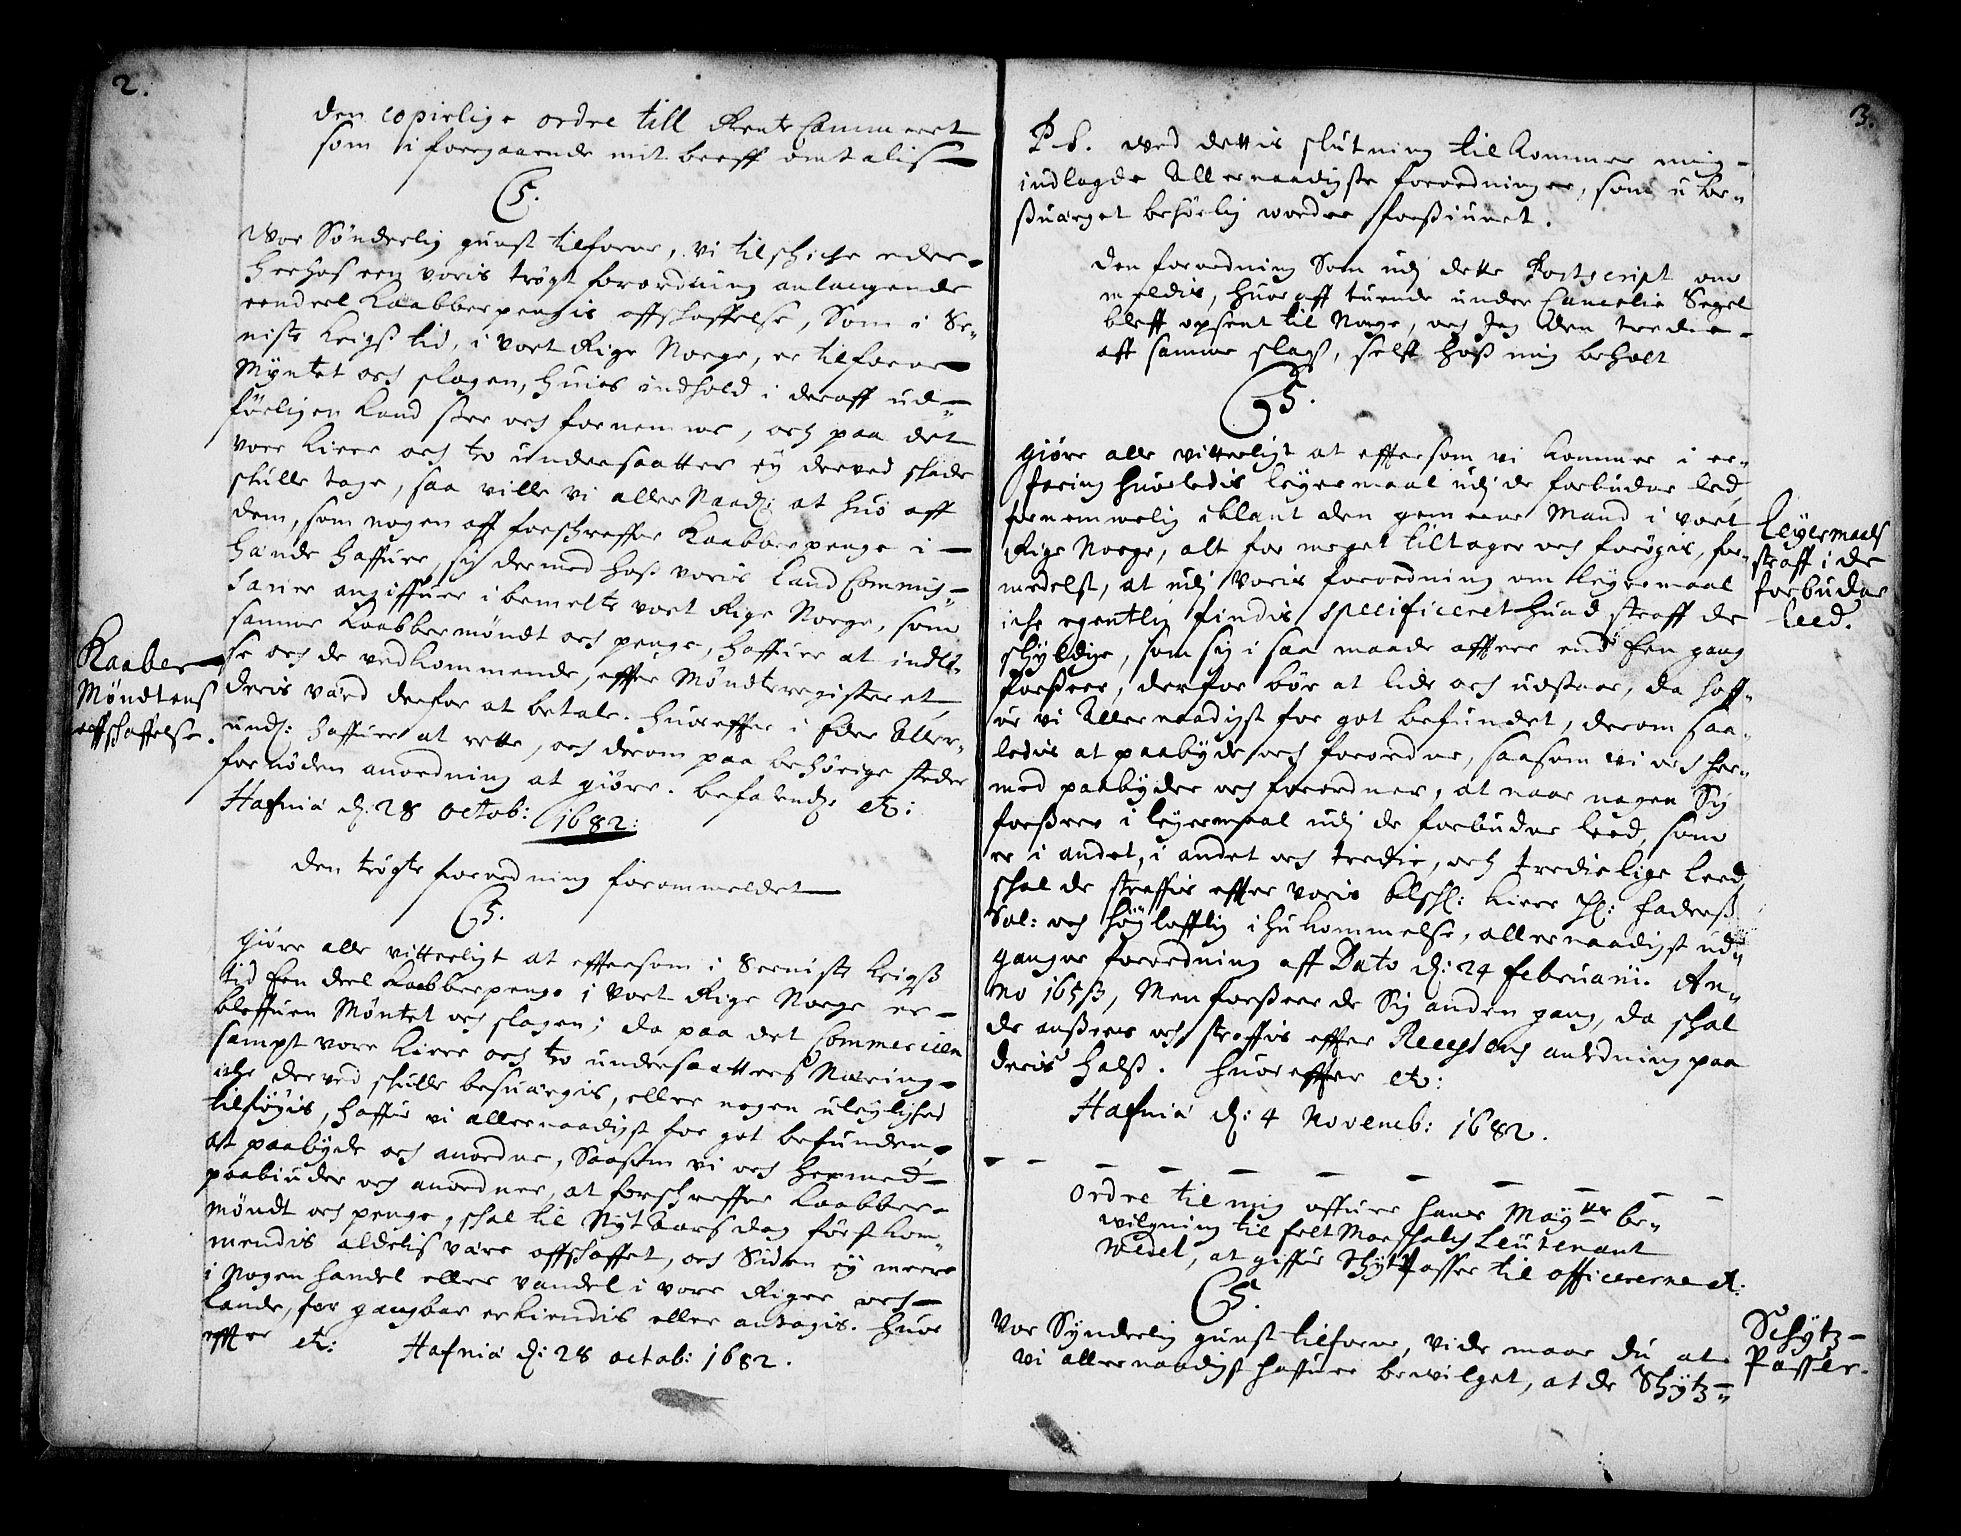 2.
den copielige ordre till Rente Cammeret
som i foregaaende mit breff omtalis
C5.
Vor Sønderlig gunst tilforne, vi tilschiche eder
herhos een voris trøgt forordning anlangende
eendeel Kaabberpengis affschaffelse, Som i Se-
niste Krigs tid, i vort Rige Norge, er tilforne
Myntet och slagen, huis indhold i deraff ud-
førligen kand see och fornemme, och paa det
vore kiere och tro undersaatter ej derved skade
skulle tage, saa ville vi aller Naad: at huo aff
dem, som nogen aff forschreffne Kaabberpenge i
hænde haffuer, sig dermed hoß voris Land Commis-
sarier angiffuer i bemelte vort Rige Norge, som
samme Kaabbermøndt och penge, haffuer at indlø-
se och de vedkommende, effter Møndteregisteret,
deris værd derfor at betale. Huoreffter i Eder Aller-
und: haffuer at rette, och derom paa behørige steder
fornøden anordning at giøre. Befalendis etc:
Hafniæ d: 28 octob: 1682:
Kaaber
Møndtens
affschaffelse.
den trøgte forordning forommeldet
C5.
Giøre alle vitterligt at effttersom i Seeniste Krigß
tid Een deel Kaabberpenge i Vort Rige Norge er
bleffuen Møntet och slagen; da paa det Commercien
sampt vore kiere och tro undersaatters Næring
iche derved skulle besuærgis, eller nogen uleylighed
tilføyis, haffue vi allernaadigst for got befunden,
at paabyde och anordne, Saasom vi och hermed
paabiuder och anordner, at forschreffne Kaabber-
møndt och penge, schal til Nyt Aars dag først kom-
mendis aldelis være affschaffet, och Siden ej meere
i Nogen handel eller vandel i vore Riger och
Lande, for gangbar erkiendis eller antagis. Huor
effter etc: Hafniæ d: 28 octob: 1682.
3.
P.S. Ved dettis slutning tilkommer mig
indlagde Allernaadigste forordninger, som u for-
suærget behørlig worder forsiunet.
den forordning Som udj dette Postscript om
meldis, huoraff tuende under Cancelie Segel
bleff opsent til Norge, och Jeg den tredie
aff samme slags, self hoß mig beholt
C5.
Giøre alle vitterligt at efftersom vi kommer i er-
faring huorledis leyermaal udj de forbudne leed,
fornemmelig iblant den gemeene Mand i vort
Rige Norge, alt for meget tiltager och forøgis, for-
medelst, at udj Voris forordning om leyermaal
iche egentlig findis specificeret huad straff de
schyldige, som sig i saa maade offtere end Een gang
forseer, derfor bør at lide och udstaae, da haff-
ue vi Allernaadigst for got befundet, derom saa-
ledis at paabyde och forordne, saasom vi och her-
med paabyder och forordner, at naar nogen Sig
forseer i leyermaal udj de forbudne leed, som
er i andet, i andet och tredie, och tredie lige leed,
schal de straffis effter voris Elschl: kiere Hl: Faders
Sal: och høylofflig ihukommelse, allernaadigst ud-
gangne forordning aff Dato d: 24 februarii. An-
no 165ß, Men forseer de Sig anden gang, da schal
de ansees och straffis effter Recessens anordning paa
deris halß. Huoreffter etc:
Hafniæ d: 4 Novemb: 1682.
Leyermaals
straff i de
forbudne
leed.
Ordre til mig offuer hans May:tts be-
vilgning til felt Marschalch Leutenant
Wedel, at giffue Schytz Passer til officererne etc:
C5.
Vor Synderlig gunst tilforne, vide maae du at
vi allernaadigst haffuer bevilget, at de Schytz-
Schytz-
Passer.